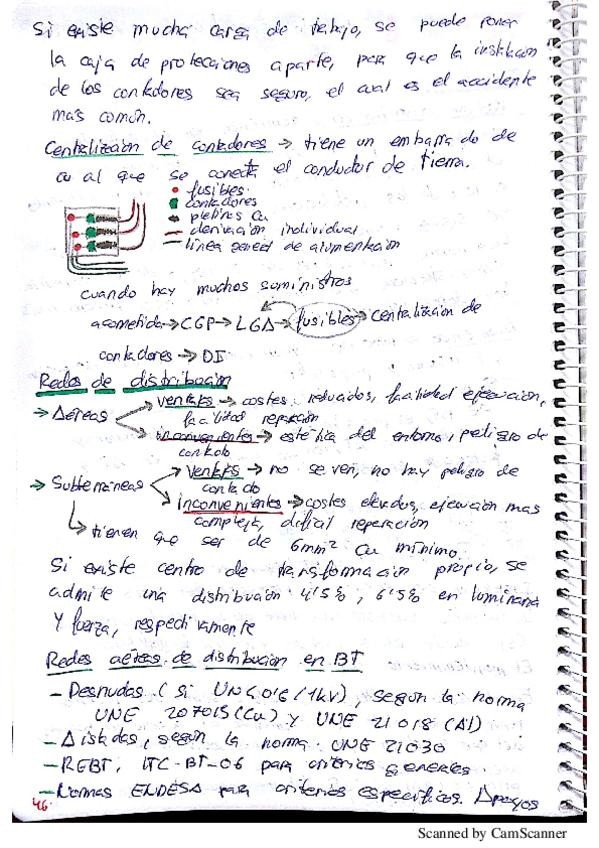 Si existe mucha carga de trabajo, se puede poner
la caja de protecciones aparte, para que la instalación
de los contadores sea seguro, el cual es el accidente
más común.
Centralización de contadores → tiene un embarrado de
cu al que se conecta el conductor de tierra.
fusibles
contadores
pletinas Cu
derivación individual
línea general de alimentación
cuando hay muchos suministros
acometida → CGP → LGA → fusibles → Centralización de
contadores → DI
Redes de distribución
→ Aéreas
ventajas → costes reducidos, facilidad ejecución,
facilidad reparación
inconvenientes → estética del entorno, peligro de
contacto
→ Subterráneas
ventajas → no se ven, no hay peligro de
contacto
inconvenientes → costes elevados, ejecución mas
compleja, difícil reparación
tienen que ser de 6mm² Cu mínimo.
Si existe centro de transformación propio, se
admite una distribución 4'5%, 6'5% en luminaria
y fuerza, respectivamente
Redes aéreas de distribución en BT
- Desnudas (si UN<0'6/1kV), según la norma
UNE 207015 (Cu) y UNE 21018 (Al)
- Aisladas, según la norma UNE 21030
- REBT, ITC-BT-06 para criterios generales
- Normas ENDESA para criterios específicos. Apoyos
46
Scanned by CamScanner